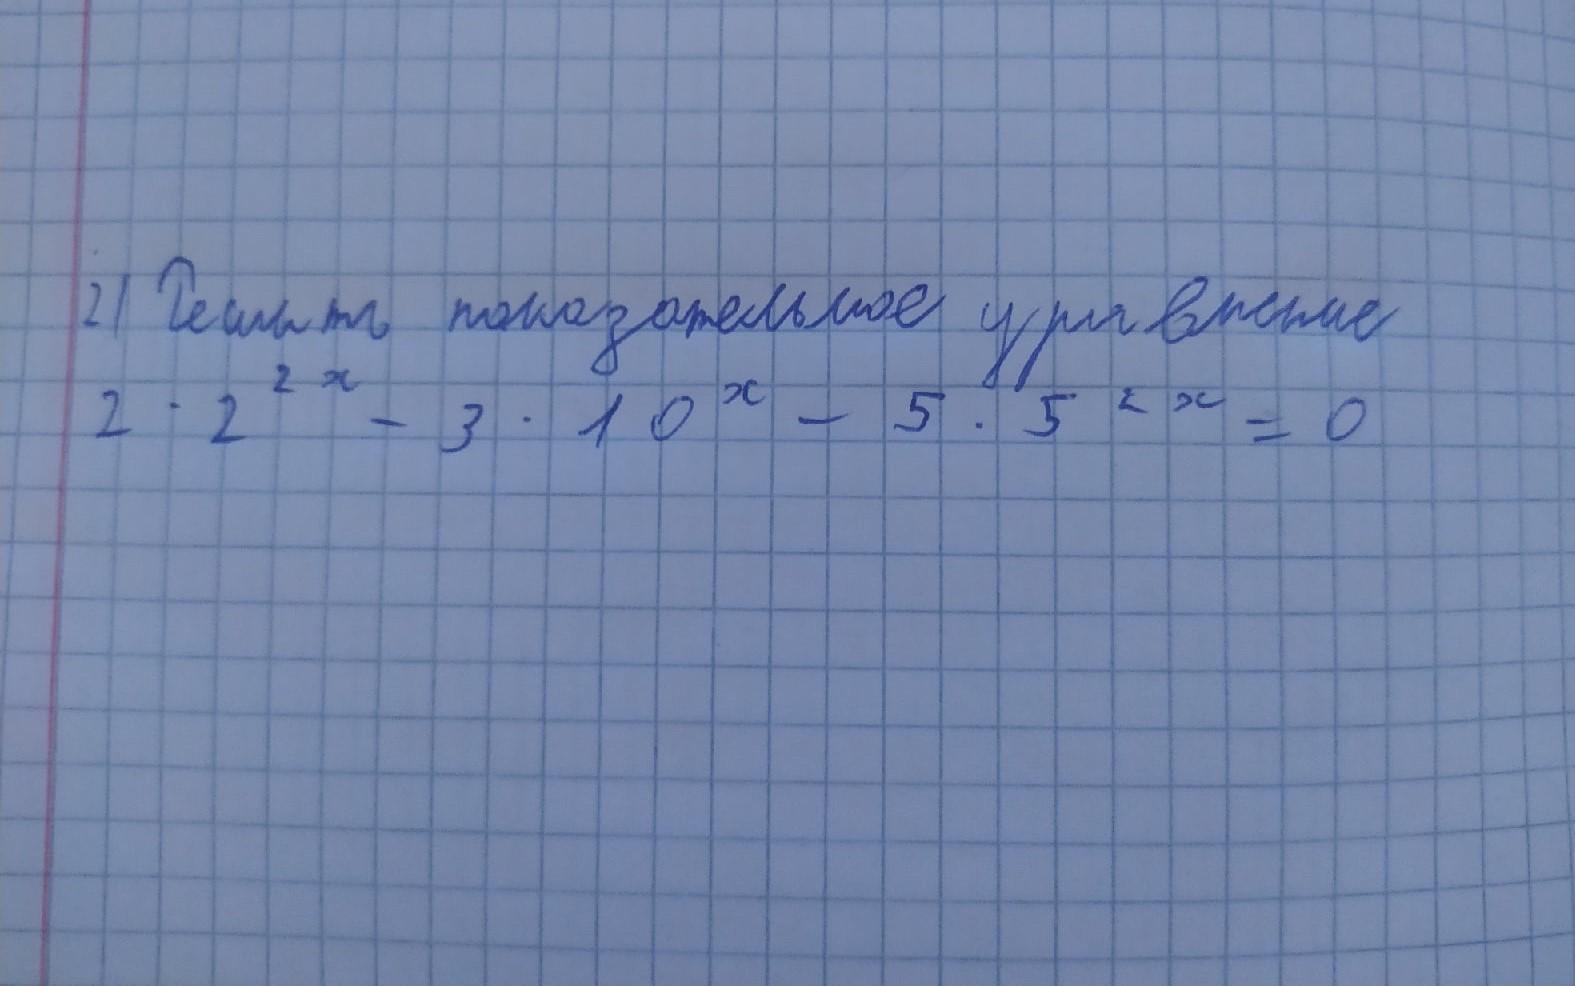 2) Решить показательное уравнение
2 · 2^{2x} - 3 · 10^{x} - 5 · 5^{2x} = 0